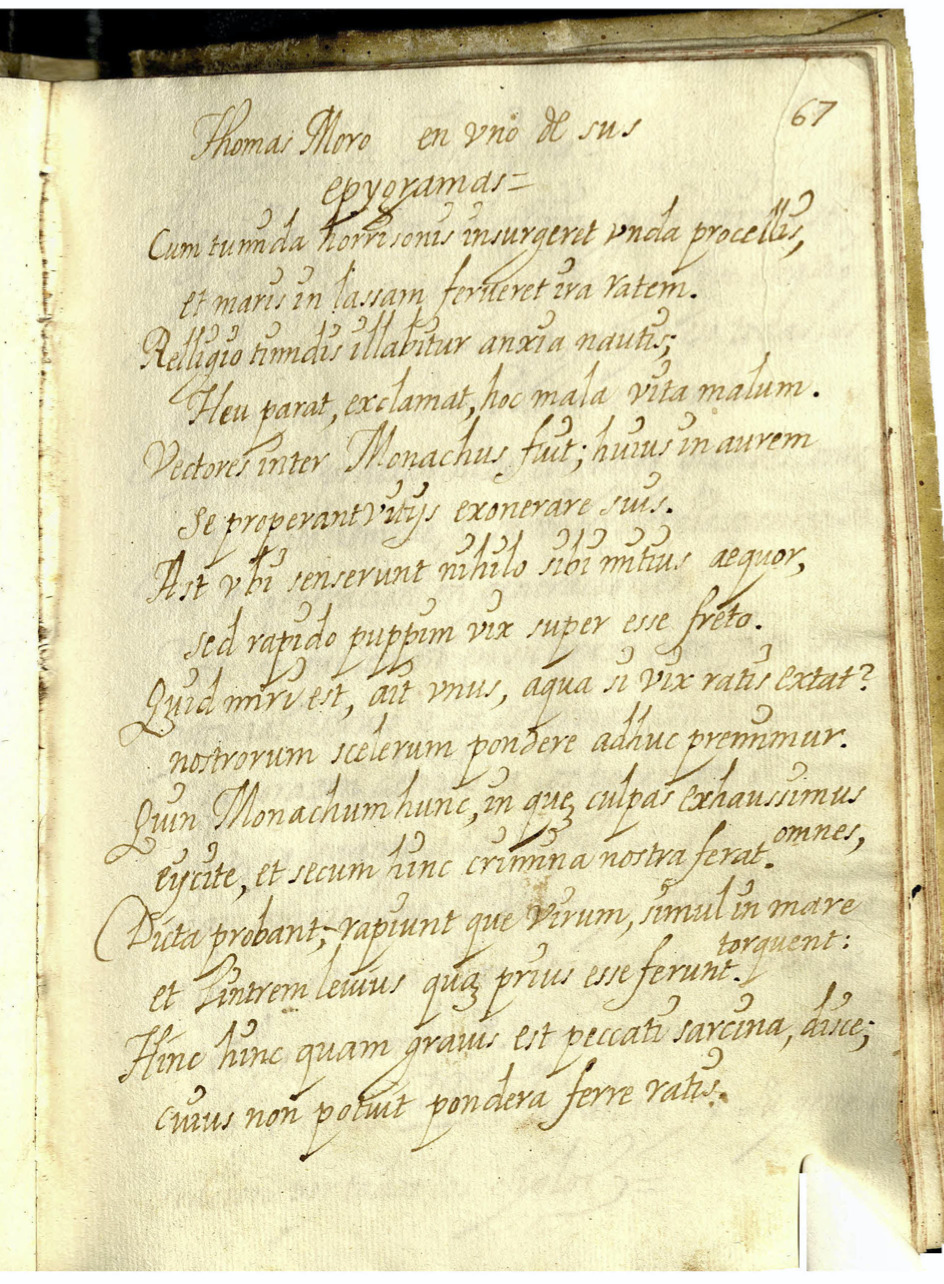 67
Thomas Moro en vno de sus
epygramas=
Cum tumida horrisonis insurgeret vnda procellis,
et maris in lassam ferueret ira ratem.
Relligio timidis illabitur anxia nautis;
Heu parat, exclamat, hoc mala vita malum.
Vectores inter Monachus fuit; huius in aurem
se properant vitijs exonerare suis.
Ast vbi senserunt nihilo sibi mitius aequor,
sed rapido puppim vix super esse freto.
Quid miri est, ait vnus, aqua si vix ratis extat?
nostrorum scelerum pondere adhuc premimur.
Quin Monachum hunc, in quẽ culpas exhaussimus
omnes,
eycite, et secum hinc crimina nostra ferat.
Dicta probant; rapiunt que virum, simul in mare
torquent:
et Lintrem leuius quã prius esse ferunt.
Hinc hinc quam grauis est peccati sarcina, disce;
cuius non potuit pondera ferre ratis.